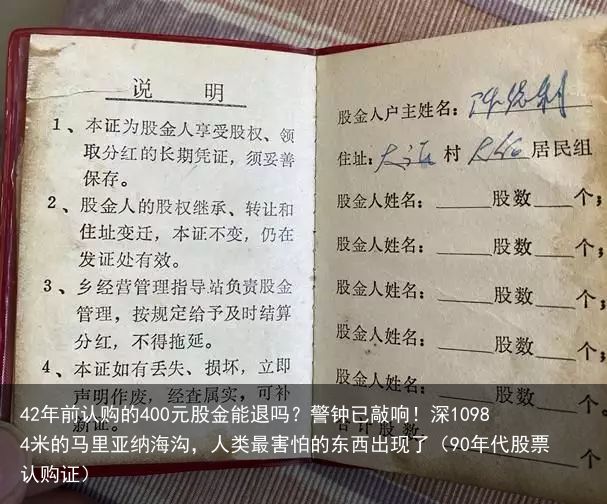 说 明
1、本证为股金人享受股权、领
取分红的长期凭证，须妥善
保存。
2、股金人的股权继承、转让和
住址变迁，本证不变，仍在
发证处有效。
3、乡经营管理指导站负责股金
管理，按规定给予及时结算
分红，不得拖延。
4、本证如有丢失、损坏，立即
声明作废，经查属实，可补
股金人户主姓名：
住址： 村 居民组
股金人姓名：____股数__个；
股金人姓名：____股数__个；
股金人姓名：____股数__个；
股金人姓名：____股数__个；
股金人姓名：____股数__个；
合计股数 个
42年前认购的400元股金能退吗？警钟已敲响！深1098
4米的马里亚纳海沟，人类最害怕的东西出现了（90年代股票
认购证）